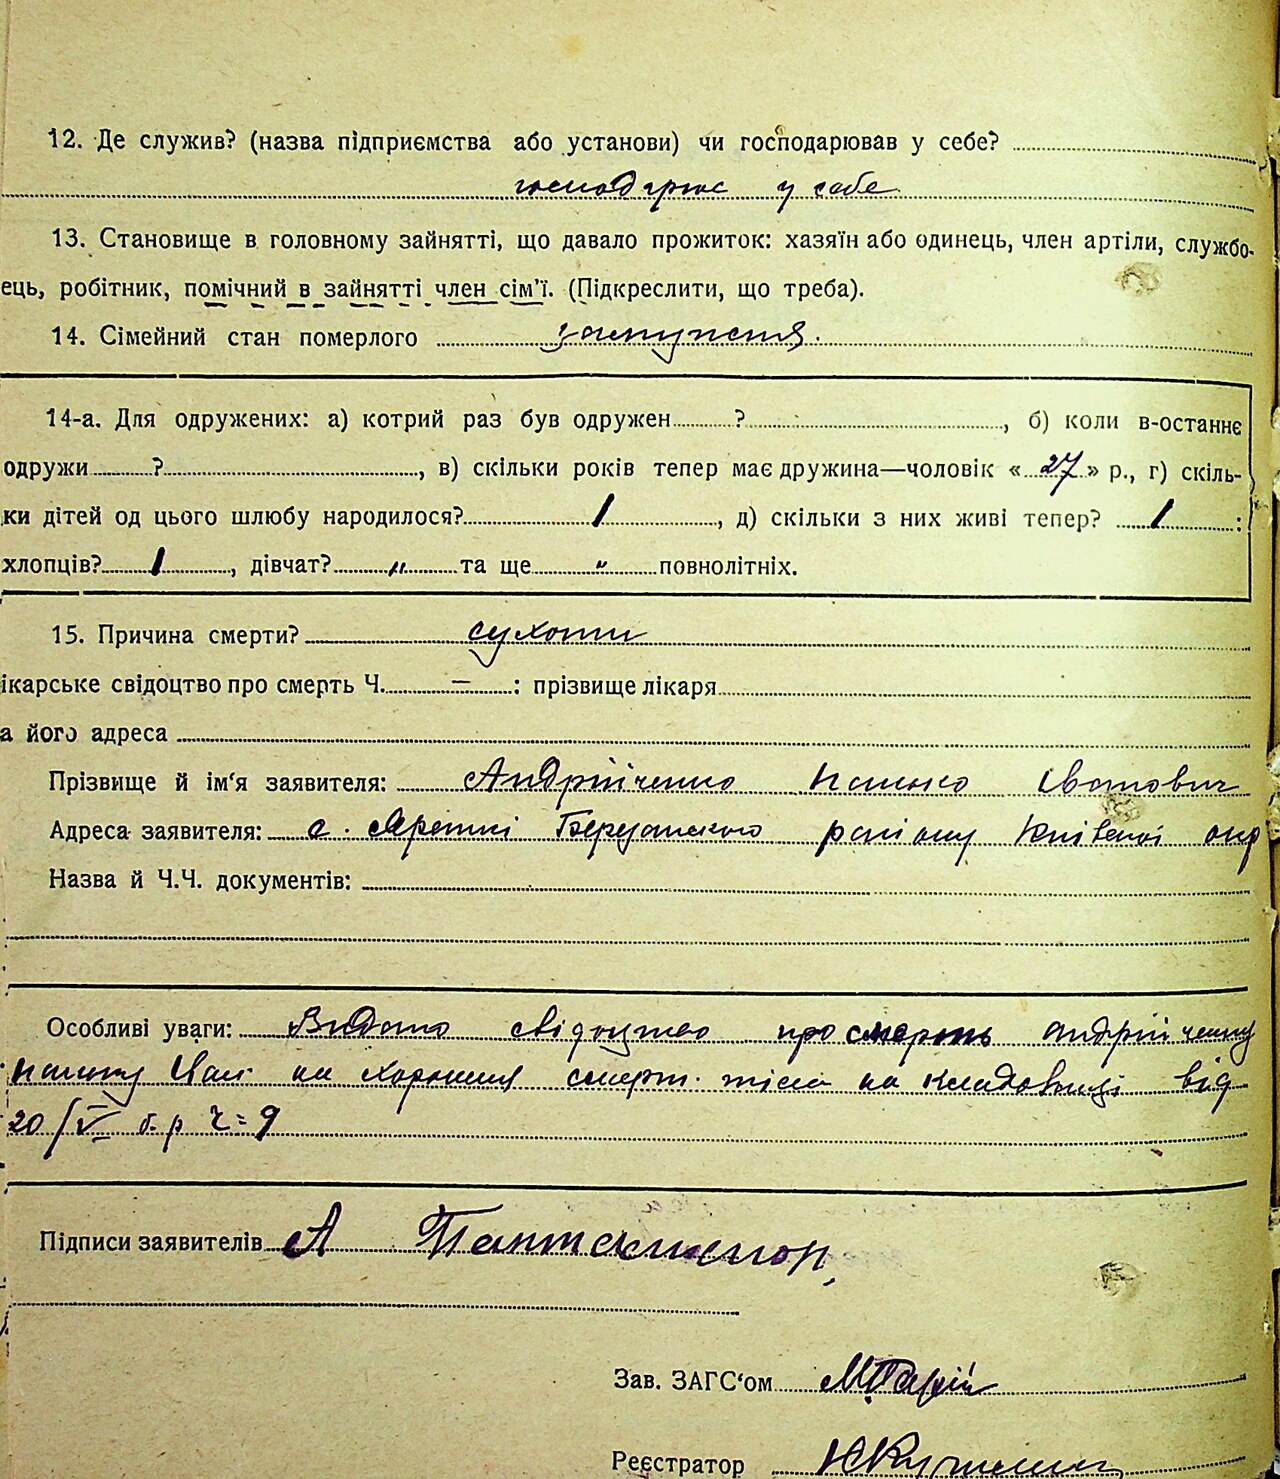 12. Де служив? (назва підприємства або установи) чи господарював у себе?
господарює у себе
13. Становище в головному зайнятті, що давало прожиток: хазяїн або одинець, член артіли, службо-
ець, робітник, помічний в зайнятті член сім'ї. (Підкреслити, що треба).
14. Сімейний стан померлого
14-а. Для одружених: а) котрий раз був одружен ?, б) коли в-останнє
одружи ?, в) скільки років тепер має дружина—чоловік « 27 » р., г) скіль-
ки дітей од цього шлюбу народилося? 1, д) скільки з них живі тепер? 1 :
хлопців? 1, дівчат? " та ще " повнолітніх.
15. Причина смерти? сухоти
ікарське свідоцтво про смерть Ч. — : прізвище лікаря
а його адреса
Прізвище й ім'я заявителя: Андрійченко Іванович
Адреса заявителя: с. Яреськи району Київської окр
Назва й Ч.Ч. документів:
Особливі уваги: Видано свідоцтво про смерть Андрійченку
Іван на смерт. тіла на кладовищі від
20/V б. р Ч = 9
Підписи заявителів А
Зав. ЗАГС'ом
Реєстратор